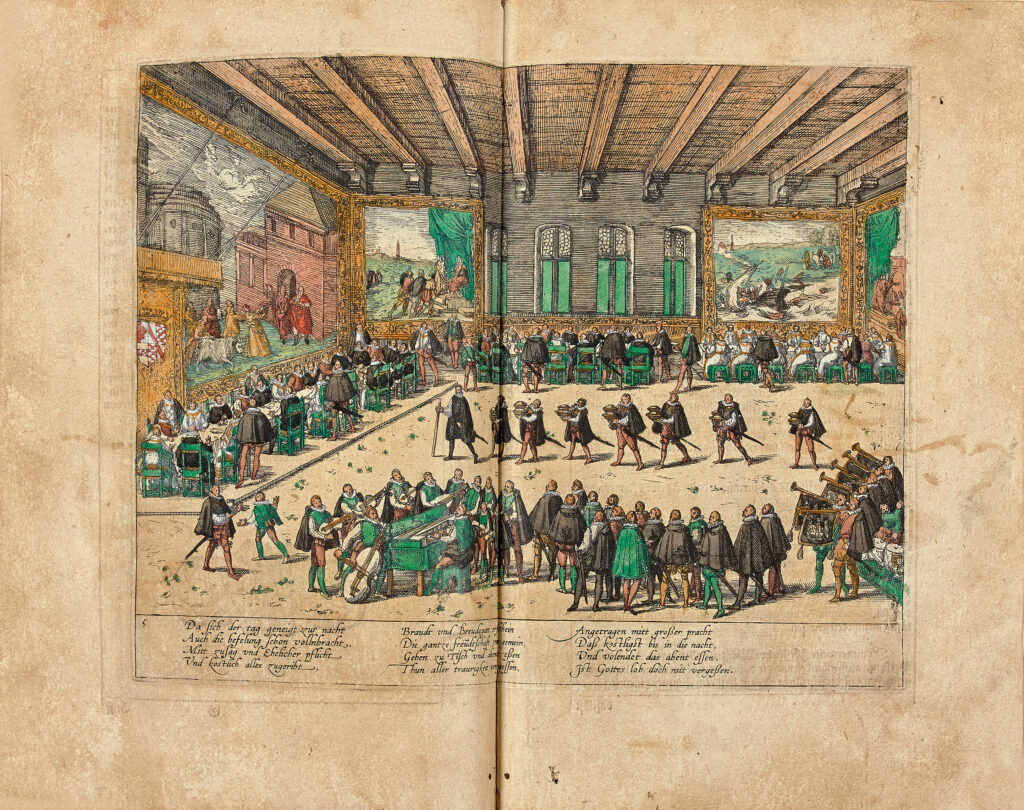 5
Da sich der tag geneigt zur nacht
Auch die beselung schon vollnbracht
Mitt zusag und Ehelicher pflicht
Und kostlich alles zugericht
Braudt und Breudegam
Die gantze freudtschafft
Gehen zu Tisch und
Thun aller traurigkeit vergessen,
Angetragen mitt grosser pracht
Dass kostligst bis in die nacht,
Und volendet das abent essen,
Ist Gottes lob doch nitt vergeßen.